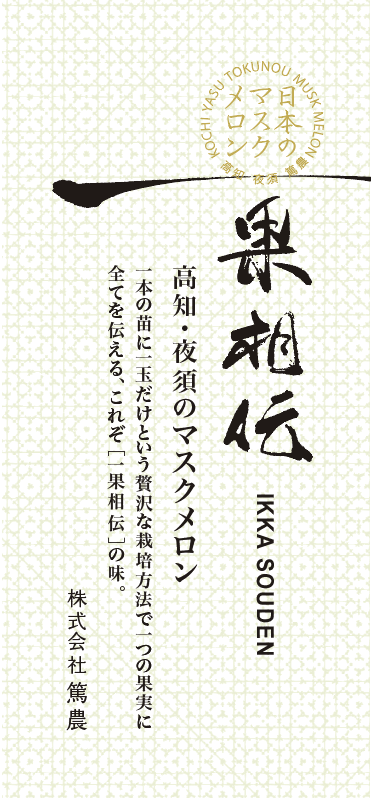 KOCHI YASU TOKUNOU MUSK MELON
日本の
マスク
メロン
高知 夜須 篤農
一果相伝
IKKA SOUDEN
高知・夜須のマスクメロン
一本の苗に一玉だけという贅沢な栽培方法で一つの果実に
全てを伝える、これぞ［一果相伝］の味。
株式会社 篤農